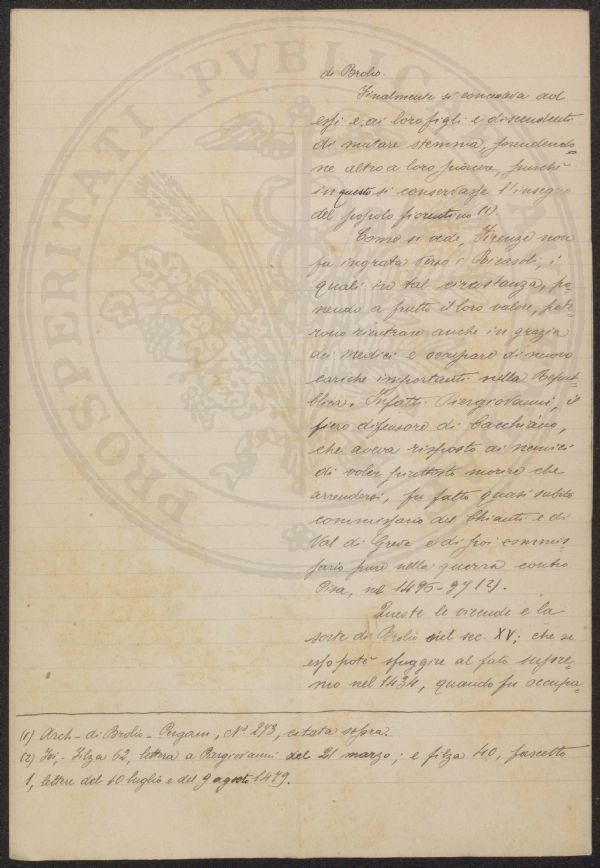 di Brolio.
Finalmente si concedeva ad
essi e ai loro figli e discendenti
di mutare stemma, prendendo-
ne altro a loro piacere, purchè
in questo si conservasse l'insegna
del popolo fiorentino (1).
Come si vede, Firenze non
fu ingrata verso i Ricasoli, i
quali in tal circostanza, po-
nendo a frutto il loro valore, pote-
rono rientrare anche in grazia
dei Medici e occupare di nuovo
cariche importanti nella Repub-
blica. Infatti Piergiovanni, il
fiero difensore di Cacchiano,
che aveva risposto ai nemici
di voler piuttosto morire che
arrendersi, fu fatto quasi subito
commissario del Chianti e di
Val di Greve e di poi commis-
sario pure nella guerra contro
Pisa, nel 1495-97 (2).
Queste le vicende e la
sorte di Brolio nel sec. XV; che se
esso potè sfuggire al fato supre-
mo nel 1434, quando fu occupa-
(1) Arch- di Brolio - Pergam, N° 293, citata sopra.
(2) Ivi, - Filza 62, lettera a Piergiovanni del 21 marzo; e filza 40, fascetto
1, lettere del 10 luglio e del 9 agosto 1479.
PROSPERITATI PVBLICAE